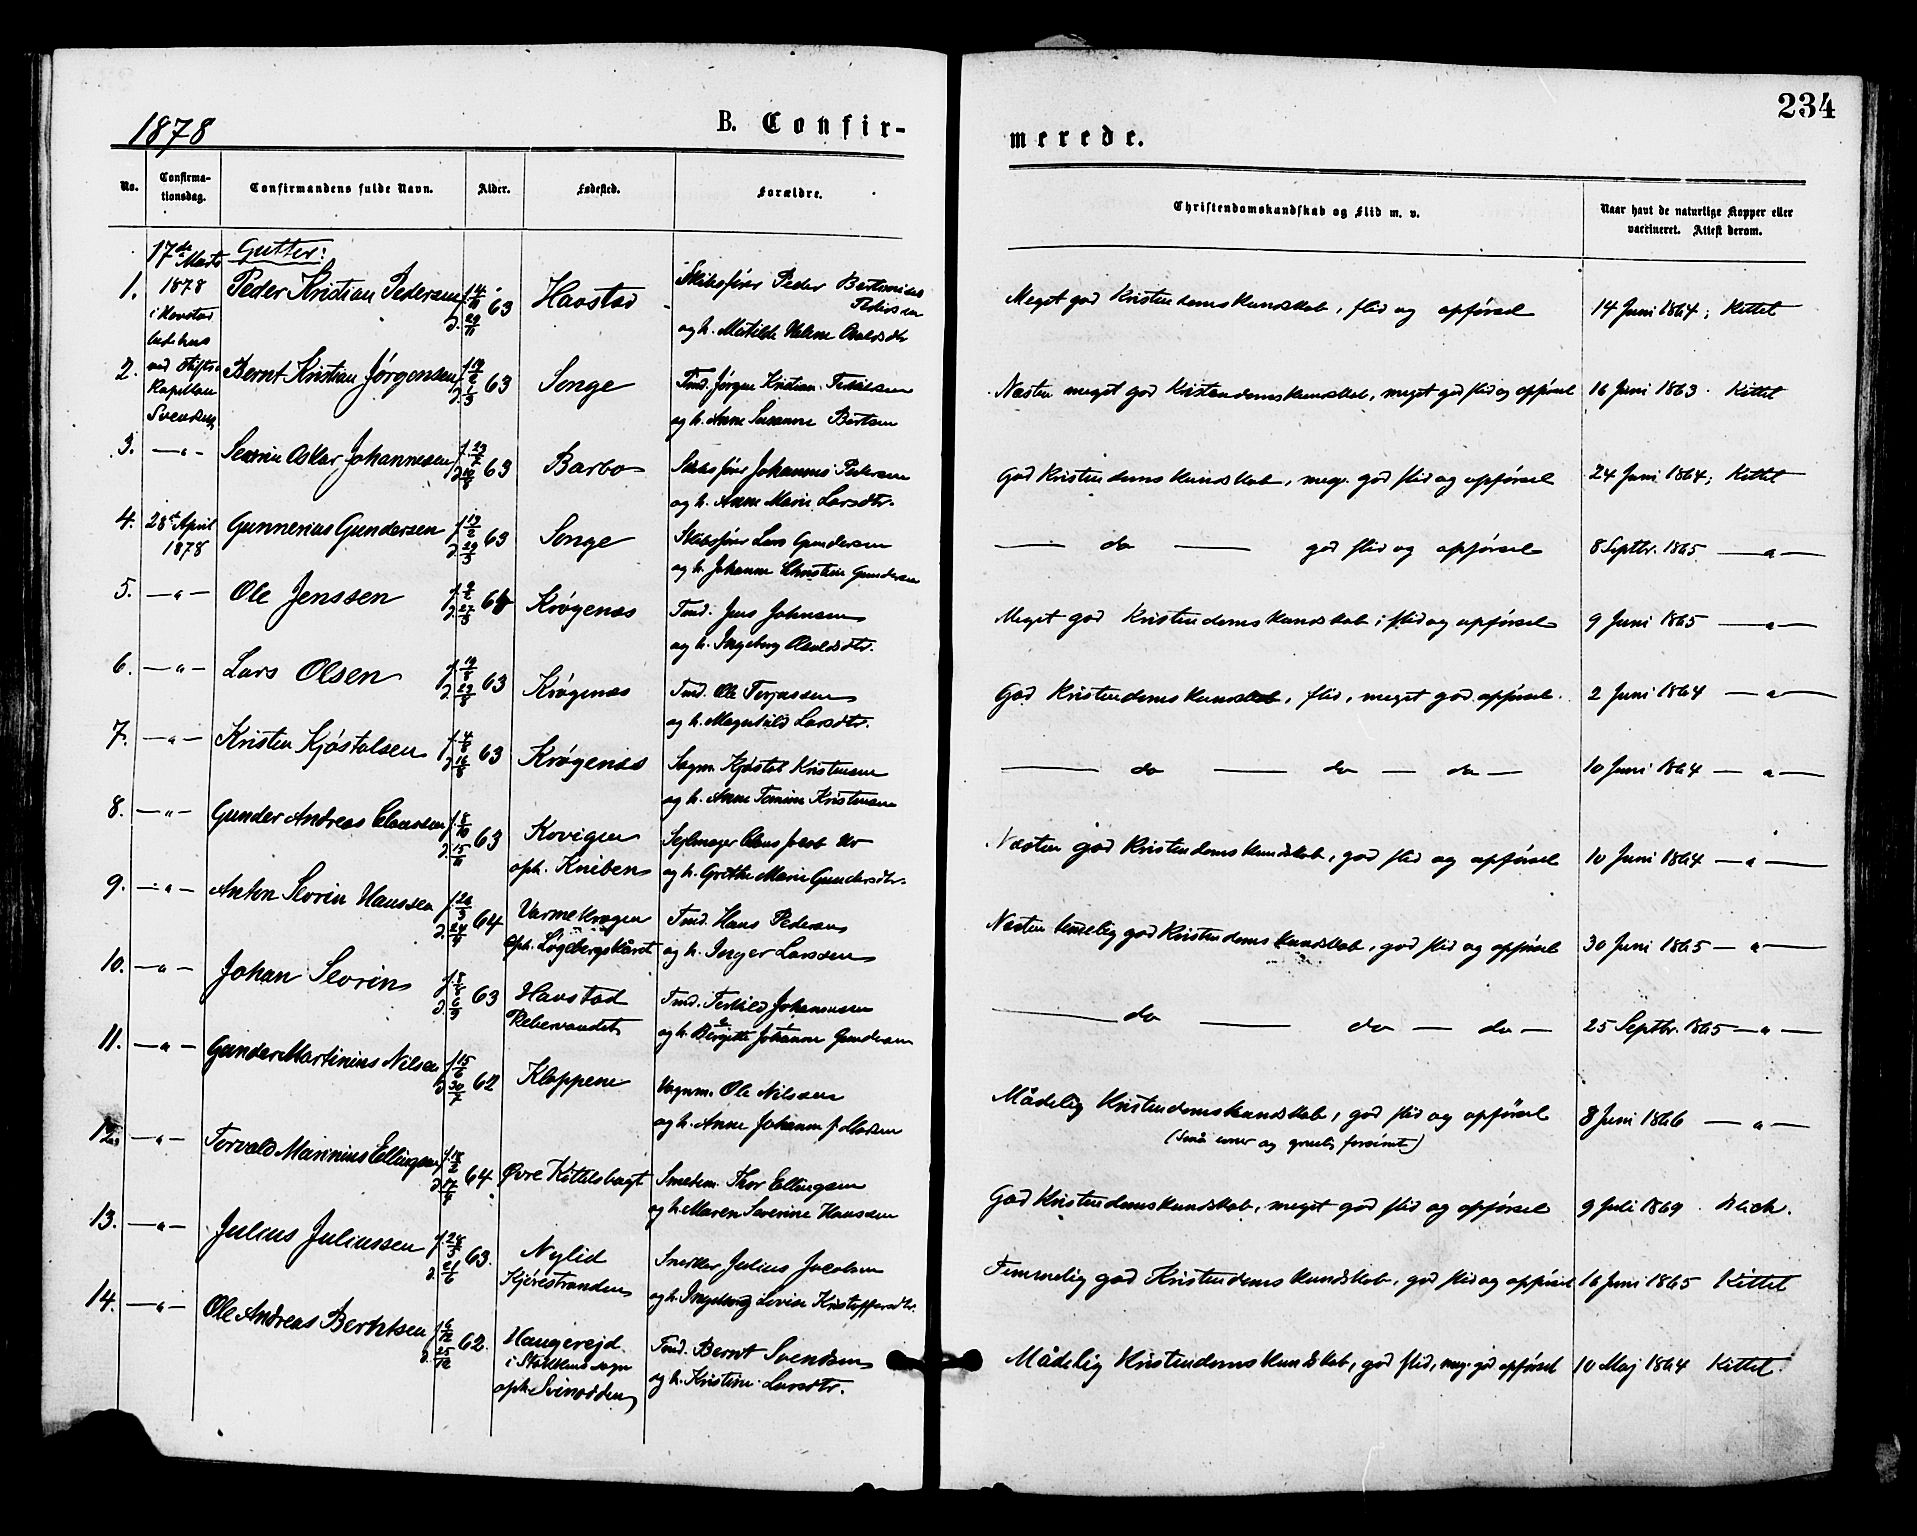 234
1878
B. Confir-
merede.
No.
Confirma-
tionsdag.
Confirmandens fulde Navn.
Alder.
Fødested.
Forældre.
Christendomskundskab og Flid m. v.
Naar havt de naturlige Kopper eller
vaccineret. Attest derom.
17de Marts
Gutter:
1.
1878
Peder Kristian Pedersen
63
Havstad
Skibsfører Peder
og h. Matilde Helene
Meget god Kristendomskundskab, flid og opførsel
14 Juni 1864; Kittel
2.
Bernt Kristian Jørgensen
63
Songe
Tmd. Jørgen Kristian
og h. Anne Susanne Bertsen
Næsten meget god Kristendomskundskab, meget god flid og opførsel
16 Juni 1863. Kittel
Kapellan
Svendsen
3.
—"—
Severin Oskar Johannesen
63
Barbo
Skibsfører Johannes Pedersen
og h. Anne Marie Larsdtr.
God Kristendomskundskab, meg. god flid og opførsel
24 Juni 1864; Kittel
4.
28de April
1878
Gunnerius Gundersen
f. 19/2
d. 29/3 63
Songe
Skibsfører Lars Gundersen
og h. Johanne Christine Gundersen
— do — god flid og opførsel
8 Septbr. 1865 —"—
5.
—"—
Ole Jenssen
Krøgenes
Tmd. Jens Johnsen
og h. Ingeborg
Meget god Kristendomskundskab, flid og opførsel
9 Juni 1865 —"—
6.
—"—
Lars Olsen
63
Krøgenes
Tmd. Ole Terjassen
og h. Magnhild Larsdtr.
God Kristendomskundskab, flid, meget god opførsel.
2 Juni 1864 —"—
7.
—"—
Kristen Kjøstolsen
f. 4/8
d. 16/8 63
Krøgenes
Sagm. Kjøstol Kristensen
og h. Anne Tomine Kristensen
— do — do — do —
10 Juni 1864 —"—
8.
—"—
Gunder Andreas Claussen
f. 8/10
d. 15/11 63
Kovigen
oph. Kniben
Sejlmager Claus Jacob
og h. Grethe Marie Gundersdtr.
Næsten god Kristendomskundskab, god flid og opførsel
10 Juni 1864 —"—
9.
—"—
Anton Severin Hanssen
f. 26/3
d. 24/4 64
Varmekrogen
oph. Løgebergskåret
Tmd. Hans Pedersen
og h. Inger Larsdtr
Næsten temmelig god Kristendomskundskab, god flid og opførsel
30 Juni 1865 —"—
10.
—"—
Johan Severin
63
Havstad
Tmd. Terkild Johannessen
og h. Birgitte Johanne Gundersen
— do — do — do —
25 Septbr. 1865 —"—
11.
—"—
Gunder Martinius Nilsen
f. 15/6
d. 30/7 62
Kloppene
Vognm. Ole Nilssen
og h. Anne Johanne f. Madsen
Mådelig Kristendomskundskab, god flid og opførsel
(Små evner og forsømt)
8 Juni 1866 —"—
12.
—"—
Torvald Marinius Ellingsen
f. 18/2
d. 17/4 64
Øvre Kittelsbugt
Smedem. Thor Ellingsen
og h. Maren Severine Hanssen
God Kristendomskundskab, meget god flid og opførsel
9 Juli 1869.
13.
—"—
Julius Juliussen
f. 28/3
d. 21/6 63.
Nylid
Snedker Julius Jacobsen
og h. Ingeborg Lovise Kristoffersdtr.
Temmelig god Kristendomskundskab, god flid og opførsel
16 Juni 1865 Kittel
14.
—"—
Ole Andreas Berntsen
f. 6/12
d. 25/12 62.
Haugerejd.
i Stokkens sogn
oph. Svinodden
Tmd. Bernt Svendsen
og h. Kristine Larsdtr.
Mådelig Kristendomskundskab, god flid, meg. god opførsel
10 Maj 1864 Kittel.